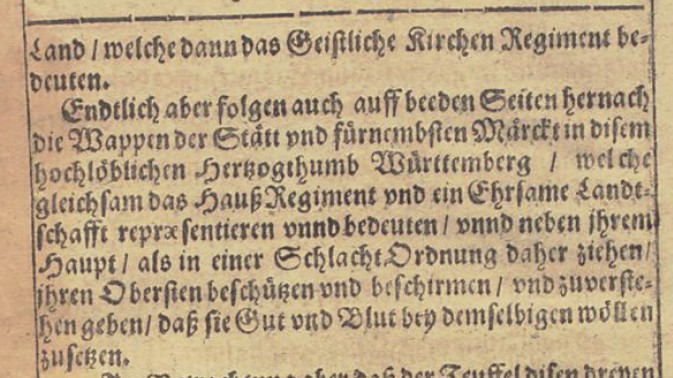 Land / welche dann das Geistliche Kirchen Regiment be-
deuten.
Endtlich aber folgen auch auff beeden Seiten hernach
die Wappen der Stätt vnd fürnembsten Märckt in disem
hochlöblichen Hertzogthumb Württemberg / welche
gleichsam das Hauß Regiment vnd ein Ehrsame Landt-
schafft repræsentieren vnnd bedeuten / vnnd neben jhrem
Haupt / als in einer Schlacht Ordnung daher ziehen /
jhren Obersten beschützen vnd beschirmen / vnd zuverste-
hen geben / daß sie Gut vnd Blut bey demselbigen wöllen
zusetzen.
aber daß der Teuffel disen dreyen